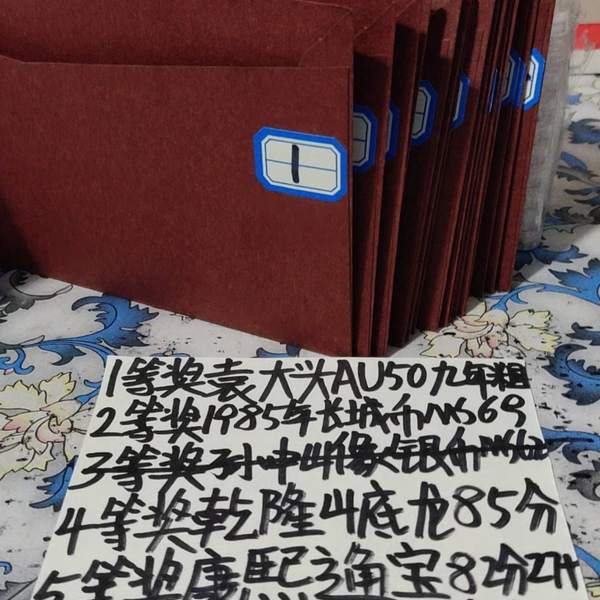 1
1等奖袁大头AU50九年粗
2等奖1985年长城币MS69
3等奖孙中山像银币MS62
4等奖乾隆山底龙85分
5等奖康熙通宝82分ZH